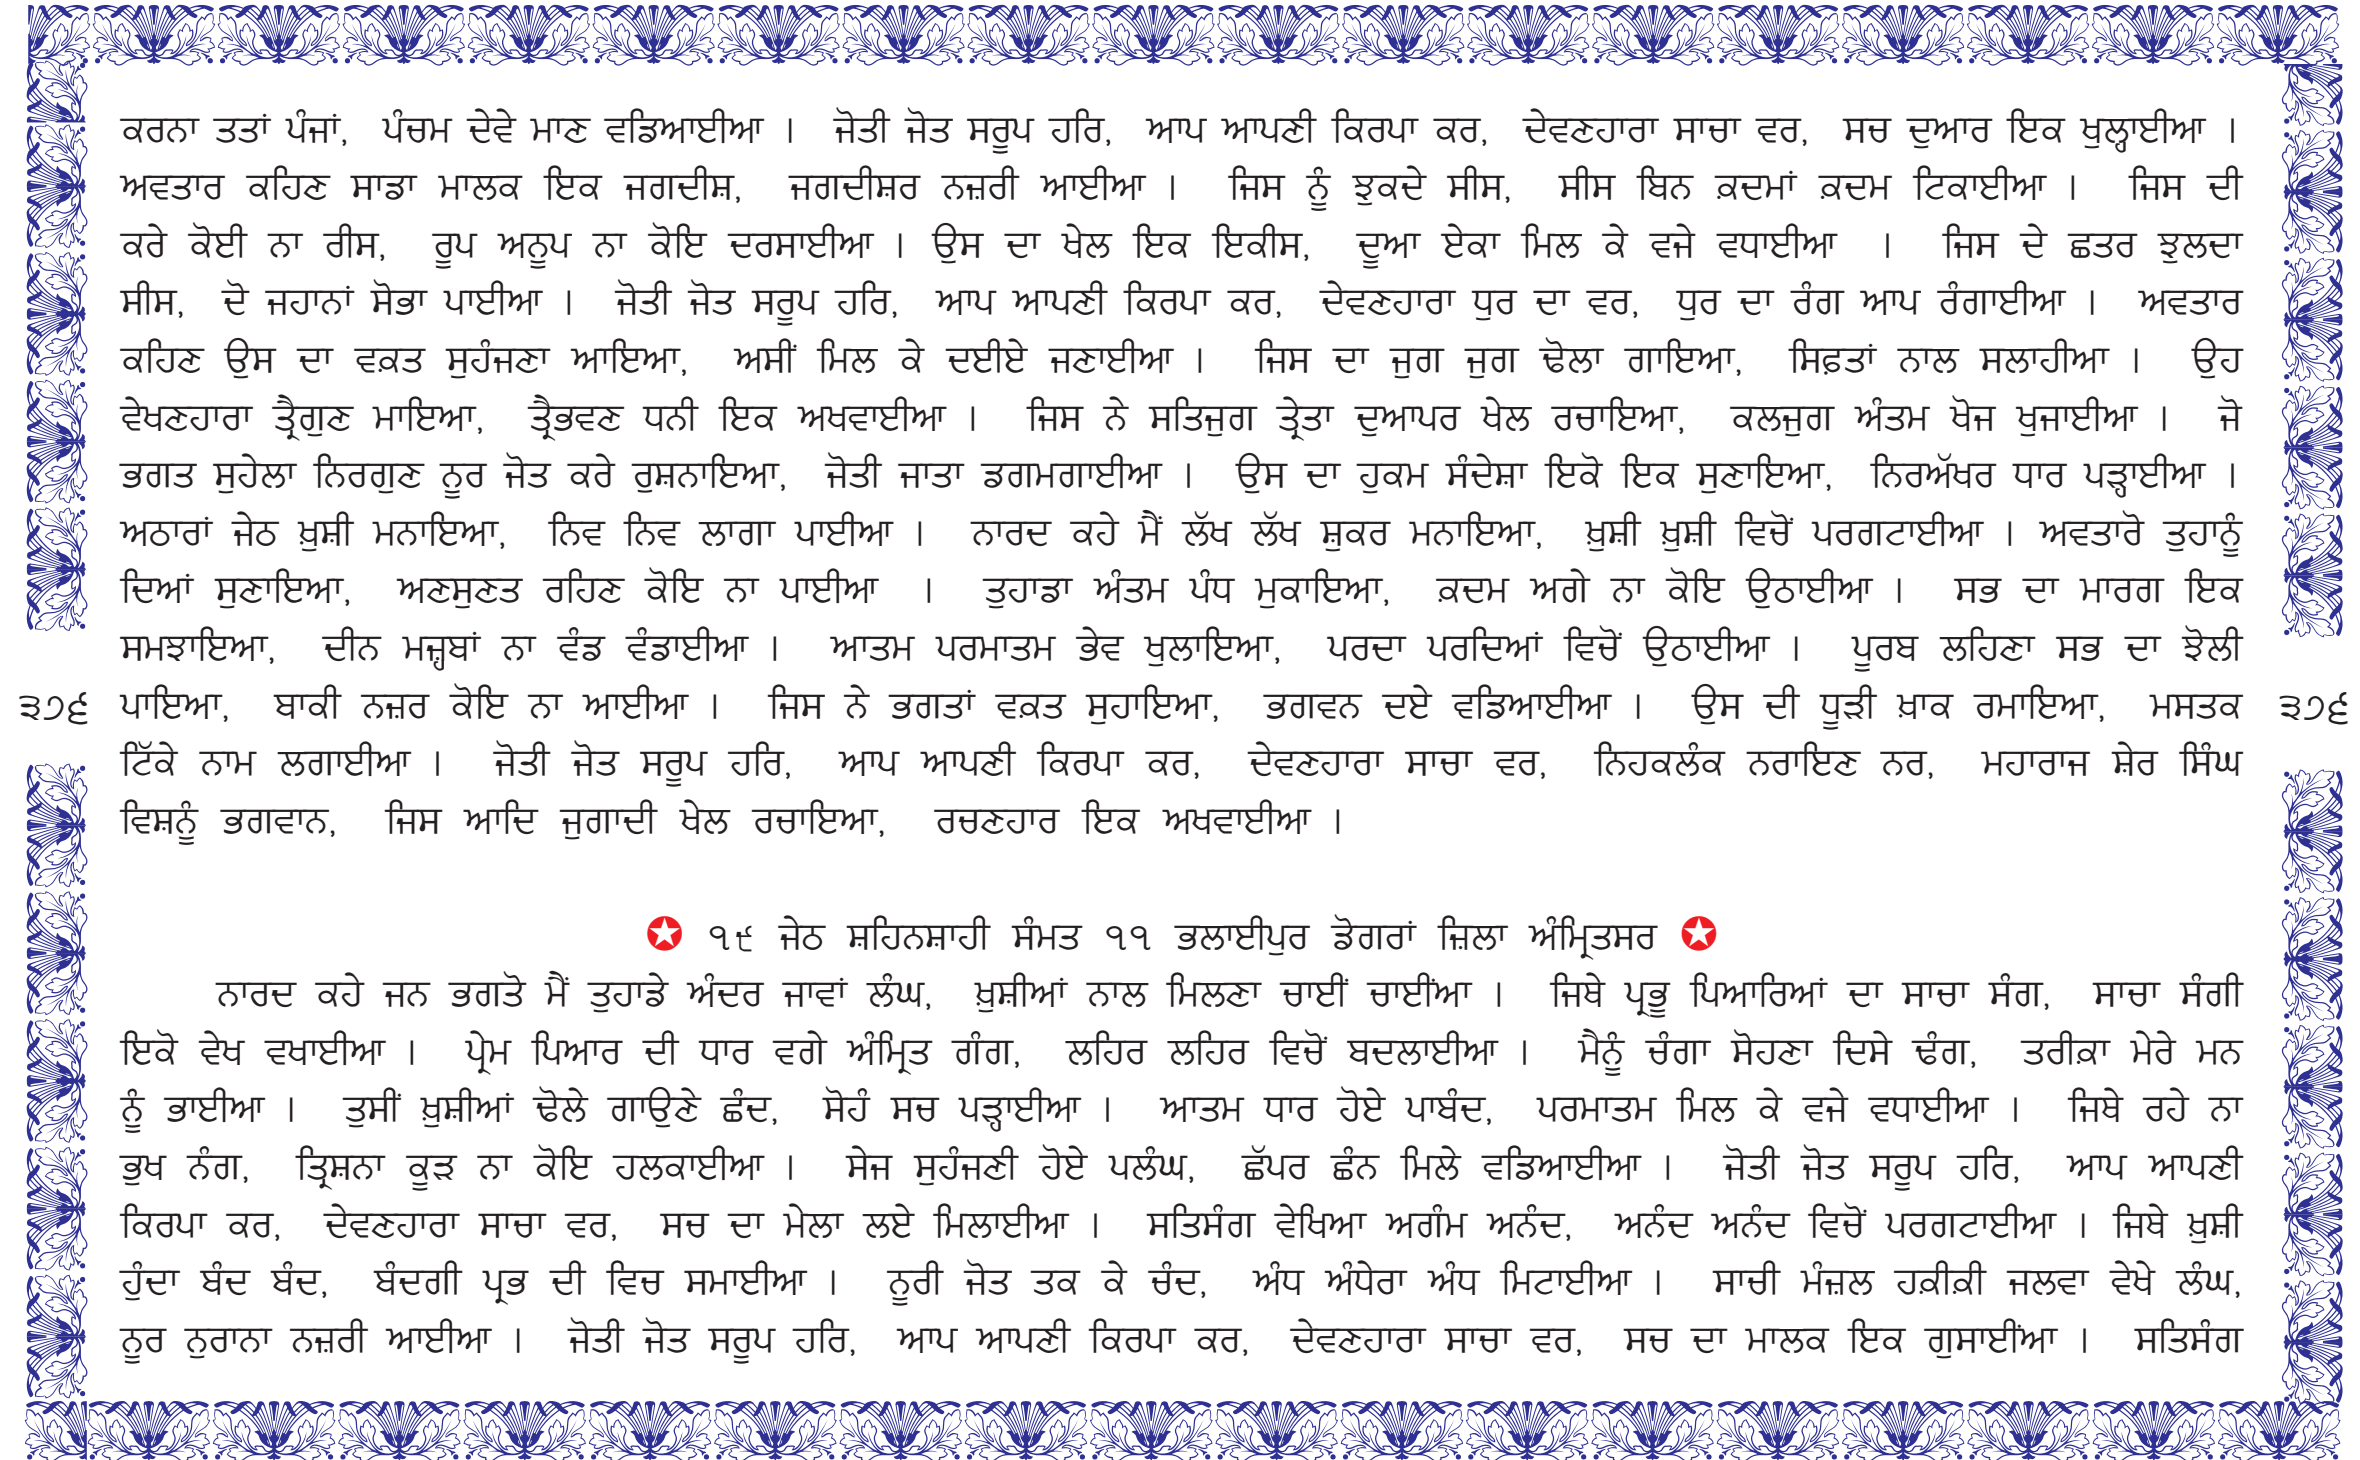 ਕਰਨਾ ਤਤਾਂ ਪੰਜਾਂ, ਪੰਚਮ ਦੇਵੇ ਮਾਣ ਵਡਿਆਈਆ । ਜੋਤੀ ਜੋਤ ਸਰੂਪ ਹਰਿ, ਆਪ ਆਪਣੀ ਕਿਰਪਾ ਕਰ, ਦੇਵਣਹਾਰਾ ਸਾਚਾ ਵਰ, ਸਚ ਦੁਆਰ ਇਕ ਖੁਲ੍ਹਾਈਆ ।
ਅਵਤਾਰ ਕਹਿਣ ਸਾਡਾ ਮਾਲਕ ਇਕ ਜਗਦੀਸ਼, ਜਗਦੀਸ਼ਰ ਨਜ਼ਰੀ ਆਈਆ । ਜਿਸ ਨੂੰ ਝੁਕਦੇ ਸੀਸ, ਸੀਸ ਬਿਨ ਕ਼ਦਮਾਂ ਕ਼ਦਮ ਟਿਕਾਈਆ । ਜਿਸ ਦੀ
ਕਰੇ ਕੋਈ ਨਾ ਰੀਸ, ਰੂਪ ਅਨੂਪ ਨਾ ਕੋਇ ਦਰਸਾਈਆ । ਉਸ ਦਾ ਖੇਲ ਇਕ ਇਕੀਸ, ਦੂਆ ਏਕਾ ਮਿਲ ਕੇ ਵਜੇ ਵਧਾਈਆ । ਜਿਸ ਦੇ ਛਤਰ ਝੁਲਦਾ
ਸੀਸ, ਦੋ ਜਹਾਨਾਂ ਸੋਭਾ ਪਾਈਆ । ਜੋਤੀ ਜੋਤ ਸਰੂਪ ਹਰਿ, ਆਪ ਆਪਣੀ ਕਿਰਪਾ ਕਰ, ਦੇਵਣਹਾਰਾ ਧੁਰ ਦਾ ਵਰ, ਧੁਰ ਦਾ ਰੰਗ ਆਪ ਰੰਗਾਈਆ । ਅਵਤਾਰ
ਕਹਿਣ ਉਸ ਦਾ ਵਕ਼ਤ ਸੁਹੰਜਣਾ ਆਇਆ, ਅਸੀਂ ਮਿਲ ਕੇ ਦਈਏ ਜਣਾਈਆ । ਜਿਸ ਦਾ ਜੁਗ ਜੁਗ ਢੋਲਾ ਗਾਇਆ, ਸਿਫ਼ਤਾਂ ਨਾਲ ਸਲਾਹੀਆ । ਉਹ
ਵੇਖਣਹਾਰਾ ਤ੍ਰੈਗੁਣ ਮਾਇਆ, ਤ੍ਰੈਭਵਣ ਧਨੀ ਇਕ ਅਖਵਾਈਆ । ਜਿਸ ਨੇ ਸਤਿਜੁਗ ਤ੍ਰੇਤਾ ਦੁਆਪਰ ਖੇਲ ਰਚਾਇਆ, ਕਲਜੁਗ ਅੰਤਮ ਖੋਜ ਖੁਜਾਈਆ । ਜੋ
ਭਗਤ ਸੁਹੇਲਾ ਨਿਰਗੁਣ ਨੂਰ ਜੋਤ ਕਰੇ ਰੁਸ਼ਨਾਇਆ, ਜੋਤੀ ਜਾਤਾ ਡਗਮਗਾਈਆ । ਉਸ ਦਾ ਹੁਕਮ ਸੰਦੇਸ਼ਾ ਇਕੋ ਇਕ ਸੁਣਾਇਆ, ਨਿਰਅੱਖਰ ਧਾਰ ਪੜ੍ਹਾਈਆ ।
ਅਠਾਰਾਂ ਜੇਠ ਖ਼ੁਸ਼ੀ ਮਨਾਇਆ, ਨਿਵ ਨਿਵ ਲਾਗਾ ਪਾਈਆ । ਨਾਰਦ ਕਹੇ ਮੈਂ ਲੱਖ ਲੱਖ ਸ਼ੁਕਰ ਮਨਾਇਆ, ਖ਼ੁਸ਼ੀ ਖ਼ੁਸ਼ੀ ਵਿਚੋਂ ਪਰਗਟਾਈਆ । ਅਵਤਾਰੋ ਤੁਹਾਨੂੰ
ਦਿਆਂ ਸੁਣਾਇਆ, ਅਣਸੁਣਤ ਰਹਿਣ ਕੋਇ ਨਾ ਪਾਈਆ । ਤੁਹਾਡਾ ਅੰਤਮ ਪੰਧ ਮੁਕਾਇਆ, ਕ਼ਦਮ ਅਗੇ ਨਾ ਕੋਇ ਉਠਾਈਆ । ਸਭ ਦਾ ਮਾਰਗ ਇਕ
ਸਮਝਾਇਆ, ਦੀਨ ਮਜ਼੍ਹਬਾਂ ਨਾ ਵੰਡ ਵੰਡਾਈਆ । ਆਤਮ ਪਰਮਾਤਮ ਭੇਵ ਖੁਲਾਇਆ, ਪਰਦਾ ਪਰਦਿਆਂ ਵਿਚੋਂ ਉਠਾਈਆ । ਪੂਰਬ ਲਹਿਣਾ ਸਭ ਦਾ ਝੋਲੀ
੩੭੯ ਪਾਇਆ, ਬਾਕੀ ਨਜ਼ਰ ਕੋਇ ਨਾ ਆਈਆ । ਜਿਸ ਨੇ ਭਗਤਾਂ ਵਕ਼ਤ ਸੁਹਾਇਆ, ਭਗਵਨ ਦਏ ਵਡਿਆਈਆ । ਉਸ ਦੀ ਧੂੜੀ ਖ਼ਾਕ ਰਮਾਇਆ, ਮਸਤਕ ੩੭੯
ਟਿੱਕੇ ਨਾਮ ਲਗਾਈਆ । ਜੋਤੀ ਜੋਤ ਸਰੂਪ ਹਰਿ, ਆਪ ਆਪਣੀ ਕਿਰਪਾ ਕਰ, ਦੇਵਣਹਾਰਾ ਸਾਚਾ ਵਰ, ਨਿਹਕਲੰਕ ਨਰਾਇਣ ਨਰ, ਮਹਾਰਾਜ ਸ਼ੇਰ ਸਿੰਘ
ਵਿਸ਼ਨੂੰ ਭਗਵਾਨ, ਜਿਸ ਆਦਿ ਜੁਗਾਦੀ ਖੇਲ ਰਚਾਇਆ, ਰਚਣਹਾਰ ਇਕ ਅਖਵਾਈਆ ।
੧੯ ਜੇਠ ਸ਼ਹਿਨਸ਼ਾਹੀ ਸੰਮਤ ੧੧ ਭਲਾਈਪੁਰ ਡੋਗਰਾਂ ਜ਼ਿਲਾ ਅੰਮ੍ਰਿਤਸਰ
ਨਾਰਦ ਕਹੇ ਜਨ ਭਗਤੋ ਮੈਂ ਤੁਹਾਡੇ ਅੰਦਰ ਜਾਵਾਂ ਲੰਘ, ਖ਼ੁਸ਼ੀਆਂ ਨਾਲ ਮਿਲਣਾ ਚਾਈਂ ਚਾਈਂਆ । ਜਿਥੇ ਪ੍ਰਭੂ ਪਿਆਰਿਆਂ ਦਾ ਸਾਚਾ ਸੰਗ, ਸਾਚਾ ਸੰਗੀ
ਇਕੋ ਵੇਖ ਵਖਾਈਆ । ਪ੍ਰੇਮ ਪਿਆਰ ਦੀ ਧਾਰ ਵਗੇ ਅੰਮ੍ਰਿਤ ਗੰਗ, ਲਹਿਰ ਲਹਿਰ ਵਿਚੋਂ ਬਦਲਾਈਆ । ਮੈਨੂੰ ਚੰਗਾ ਸੋਹਣਾ ਦਿਸੇ ਢੰਗ, ਤਰੀਕ਼ਾ ਮੇਰੇ ਮਨ
ਨੂੰ ਭਾਈਆ । ਤੁਸੀਂ ਖ਼ੁਸ਼ੀਆਂ ਢੋਲੇ ਗਾਉਣੇ ਛੰਦ, ਸੋਹੰ ਸਚ ਪੜ੍ਹਾਈਆ । ਆਤਮ ਧਾਰ ਹੋਏ ਪਾਬੰਦ, ਪਰਮਾਤਮ ਮਿਲ ਕੇ ਵਜੇ ਵਧਾਈਆ । ਜਿਥੇ ਰਹੇ ਨਾ
ਭੁਖ ਨੰਗ, ਤ੍ਰਿਸ਼ਨਾ ਕੂੜ ਨਾ ਕੋਇ ਹਲਕਾਈਆ । ਸੇਜ ਸੁਹੰਜਣੀ ਹੋਏ ਪਲੰਘ, ਛੱਪਰ ਛੰਨ ਮਿਲੇ ਵਡਿਆਈਆ । ਜੋਤੀ ਜੋਤ ਸਰੂਪ ਹਰਿ, ਆਪ ਆਪਣੀ
ਕਿਰਪਾ ਕਰ, ਦੇਵਣਹਾਰਾ ਸਾਚਾ ਵਰ, ਸਚ ਦਾ ਮੇਲਾ ਲਏ ਮਿਲਾਈਆ । ਸਤਿਸੰਗ ਵੇਖਿਆ ਅਗੰਮ ਅਨੰਦ, ਅਨੰਦ ਅਨੰਦ ਵਿਚੋਂ ਪਰਗਟਾਈਆ । ਜਿਥੇ ਖ਼ੁਸ਼ੀ
ਹੁੰਦਾ ਬੰਦ ਬੰਦ, ਬੰਦਗੀ ਪ੍ਰਭ ਦੀ ਵਿਚ ਸਮਾਈਆ । ਨੂਰੀ ਜੋਤ ਤਕ ਕੇ ਚੰਦ, ਅੰਧ ਅੰਧੇਰਾ ਅੰਧ ਮਿਟਾਈਆ । ਸਾਚੀ ਮੰਜ਼ਲ ਹਕ਼ੀਕ਼ੀ ਜਲਵਾ ਵੇਖੇ ਲੰਘ,
ਨੂਰ ਨੁਰਾਨਾ ਨਜ਼ਰੀ ਆਈਆ । ਜੋਤੀ ਜੋਤ ਸਰੂਪ ਹਰਿ, ਆਪ ਆਪਣੀ ਕਿਰਪਾ ਕਰ, ਦੇਵਣਹਾਰਾ ਸਾਚਾ ਵਰ, ਸਚ ਦਾ ਮਾਲਕ ਇਕ ਗੁਸਾਈਂਆ । ਸਤਿਸੰਗ